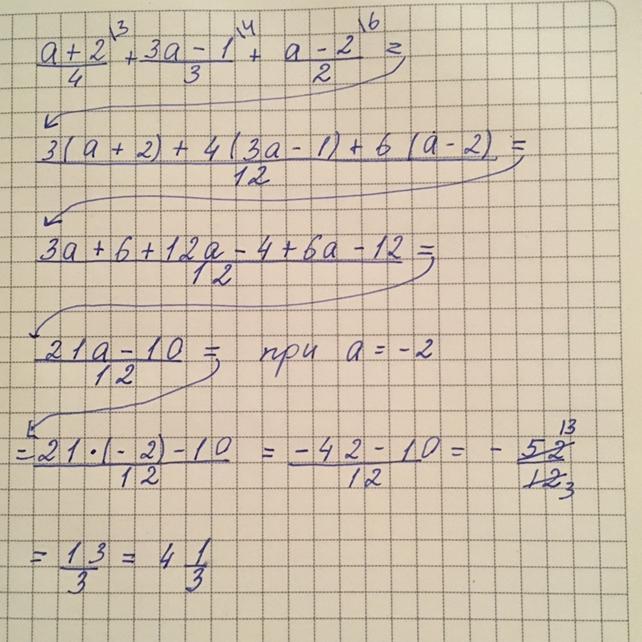 (a + 2)/4 \3 + (3a - 1)/3 \4 + (a - 2)/2 \6 =
(3(a + 2) + 4(3a - 1) + 6(a - 2))/12 =
(3a + 6 + 12a - 4 + 6a - 12)/12 =
(21a - 10)/12 = при a = -2
= (21·(-2) - 10)/12 = (-42 - 10)/12 = - 52/12 13/3
= 13/3 = 4 1/3